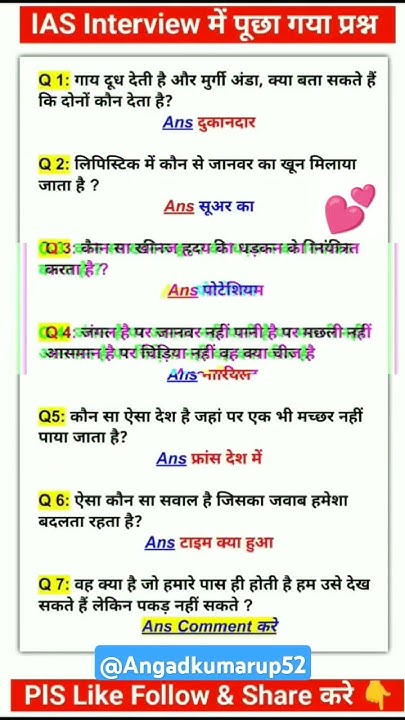 IAS Interview में पूछा गया प्रश्न
Q 1: गाय दूध देती है और मुर्गी अंडा, क्या बता सकते हैं
कि दोनों कौन देता है?
Ans दुकानदार
Q 2: लिपिस्टिक में कौन से जानवर का खून मिलाया
जाता है ?
Ans सूअर का
Q 3: कौन सा खनिज हृदय की धड़कन के नियंत्रित
करता है ?
Ans पोटेशियम
Q 4: जंगल है पर जानवर नहीं पानी है पर मछली नहीं
आसमान है पर चिड़िया नहीं वह क्या चीज है
Ans नारियल
Q5: कौन सा ऐसा देश है जहां पर एक भी मच्छर नहीं
पाया जाता है?
Ans फ्रांस देश में
Q 6: ऐसा कौन सा सवाल है जिसका जवाब हमेशा
बदलता रहता है?
Ans टाइम क्या हुआ
Q 7: वह क्या है जो हमारे पास ही होती है हम उसे देख
सकते हैं लेकिन पकड़ नहीं सकते ?
Ans Comment करे
@Angadkumarup52
PIS Like Follow & Share करे